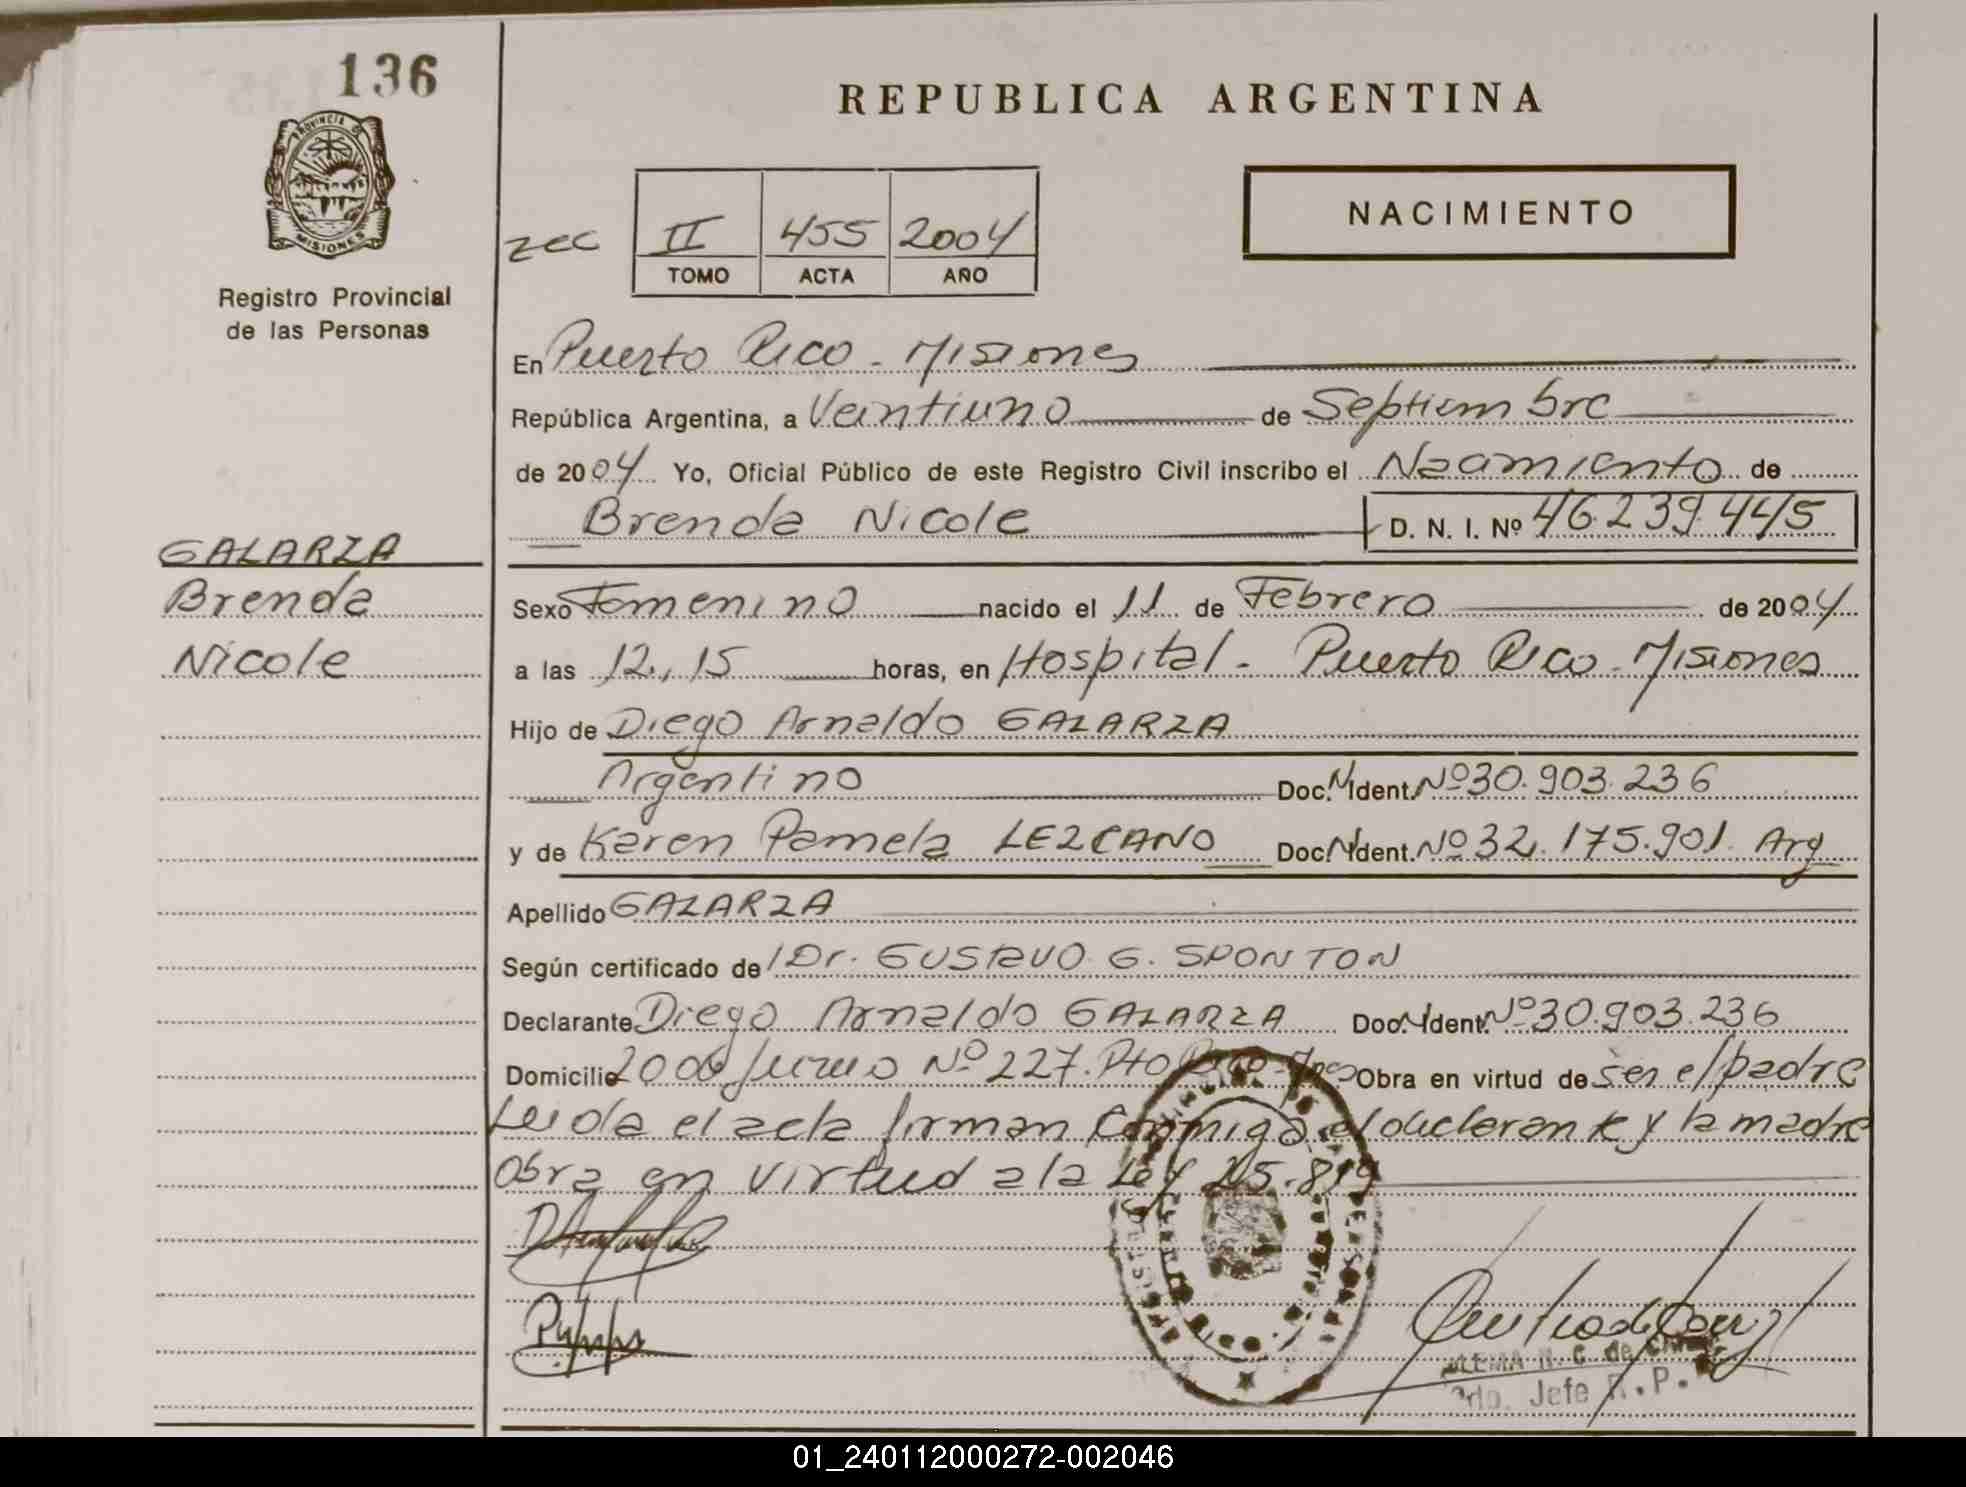 136
PROVINCIA DE
MISIONES
Registro Provincial
de las Personas
REPUBLICA ARGENTINA
NACIMIENTO
II 455 2004
TOMO ACTA AÑO
En Puerto Rico - Misiones
República Argentina, a Veintiuno de Septiembre
de 2004 Yo, Oficial Público de este Registro Civil inscribo el Nacimiento de
Brenda Nicole D. N. I. Nº 46.239.445
GALARZA
Brenda
Nicole
Sexo Femenino nacido el 11 de Febrero de 2004
a las 12,15 horas, en Hospital - Puerto Rico - Misiones
Hijo de Diego Arnaldo GALARZA
Argentino Doc. N. Ident. Nº 30.903.236
y de Karen Pamela LEZCANO Doc. N. Ident. Nº 32.175.901 Arg
Apellido GALARZA
Según certificado de Dr. GUSTAVO G. SPONTON
Declarante Diego Arnaldo GALARZA Doc. N. Ident. Nº 30.903.236
Domicilio Nº 227. Pto Rico Obra en virtud de ser el padre
Leida el acta firman conmigo el declarante y la madre
Obra en virtud a la Ley 25.819
de
Jefe R.P.
01_240112000272-002046